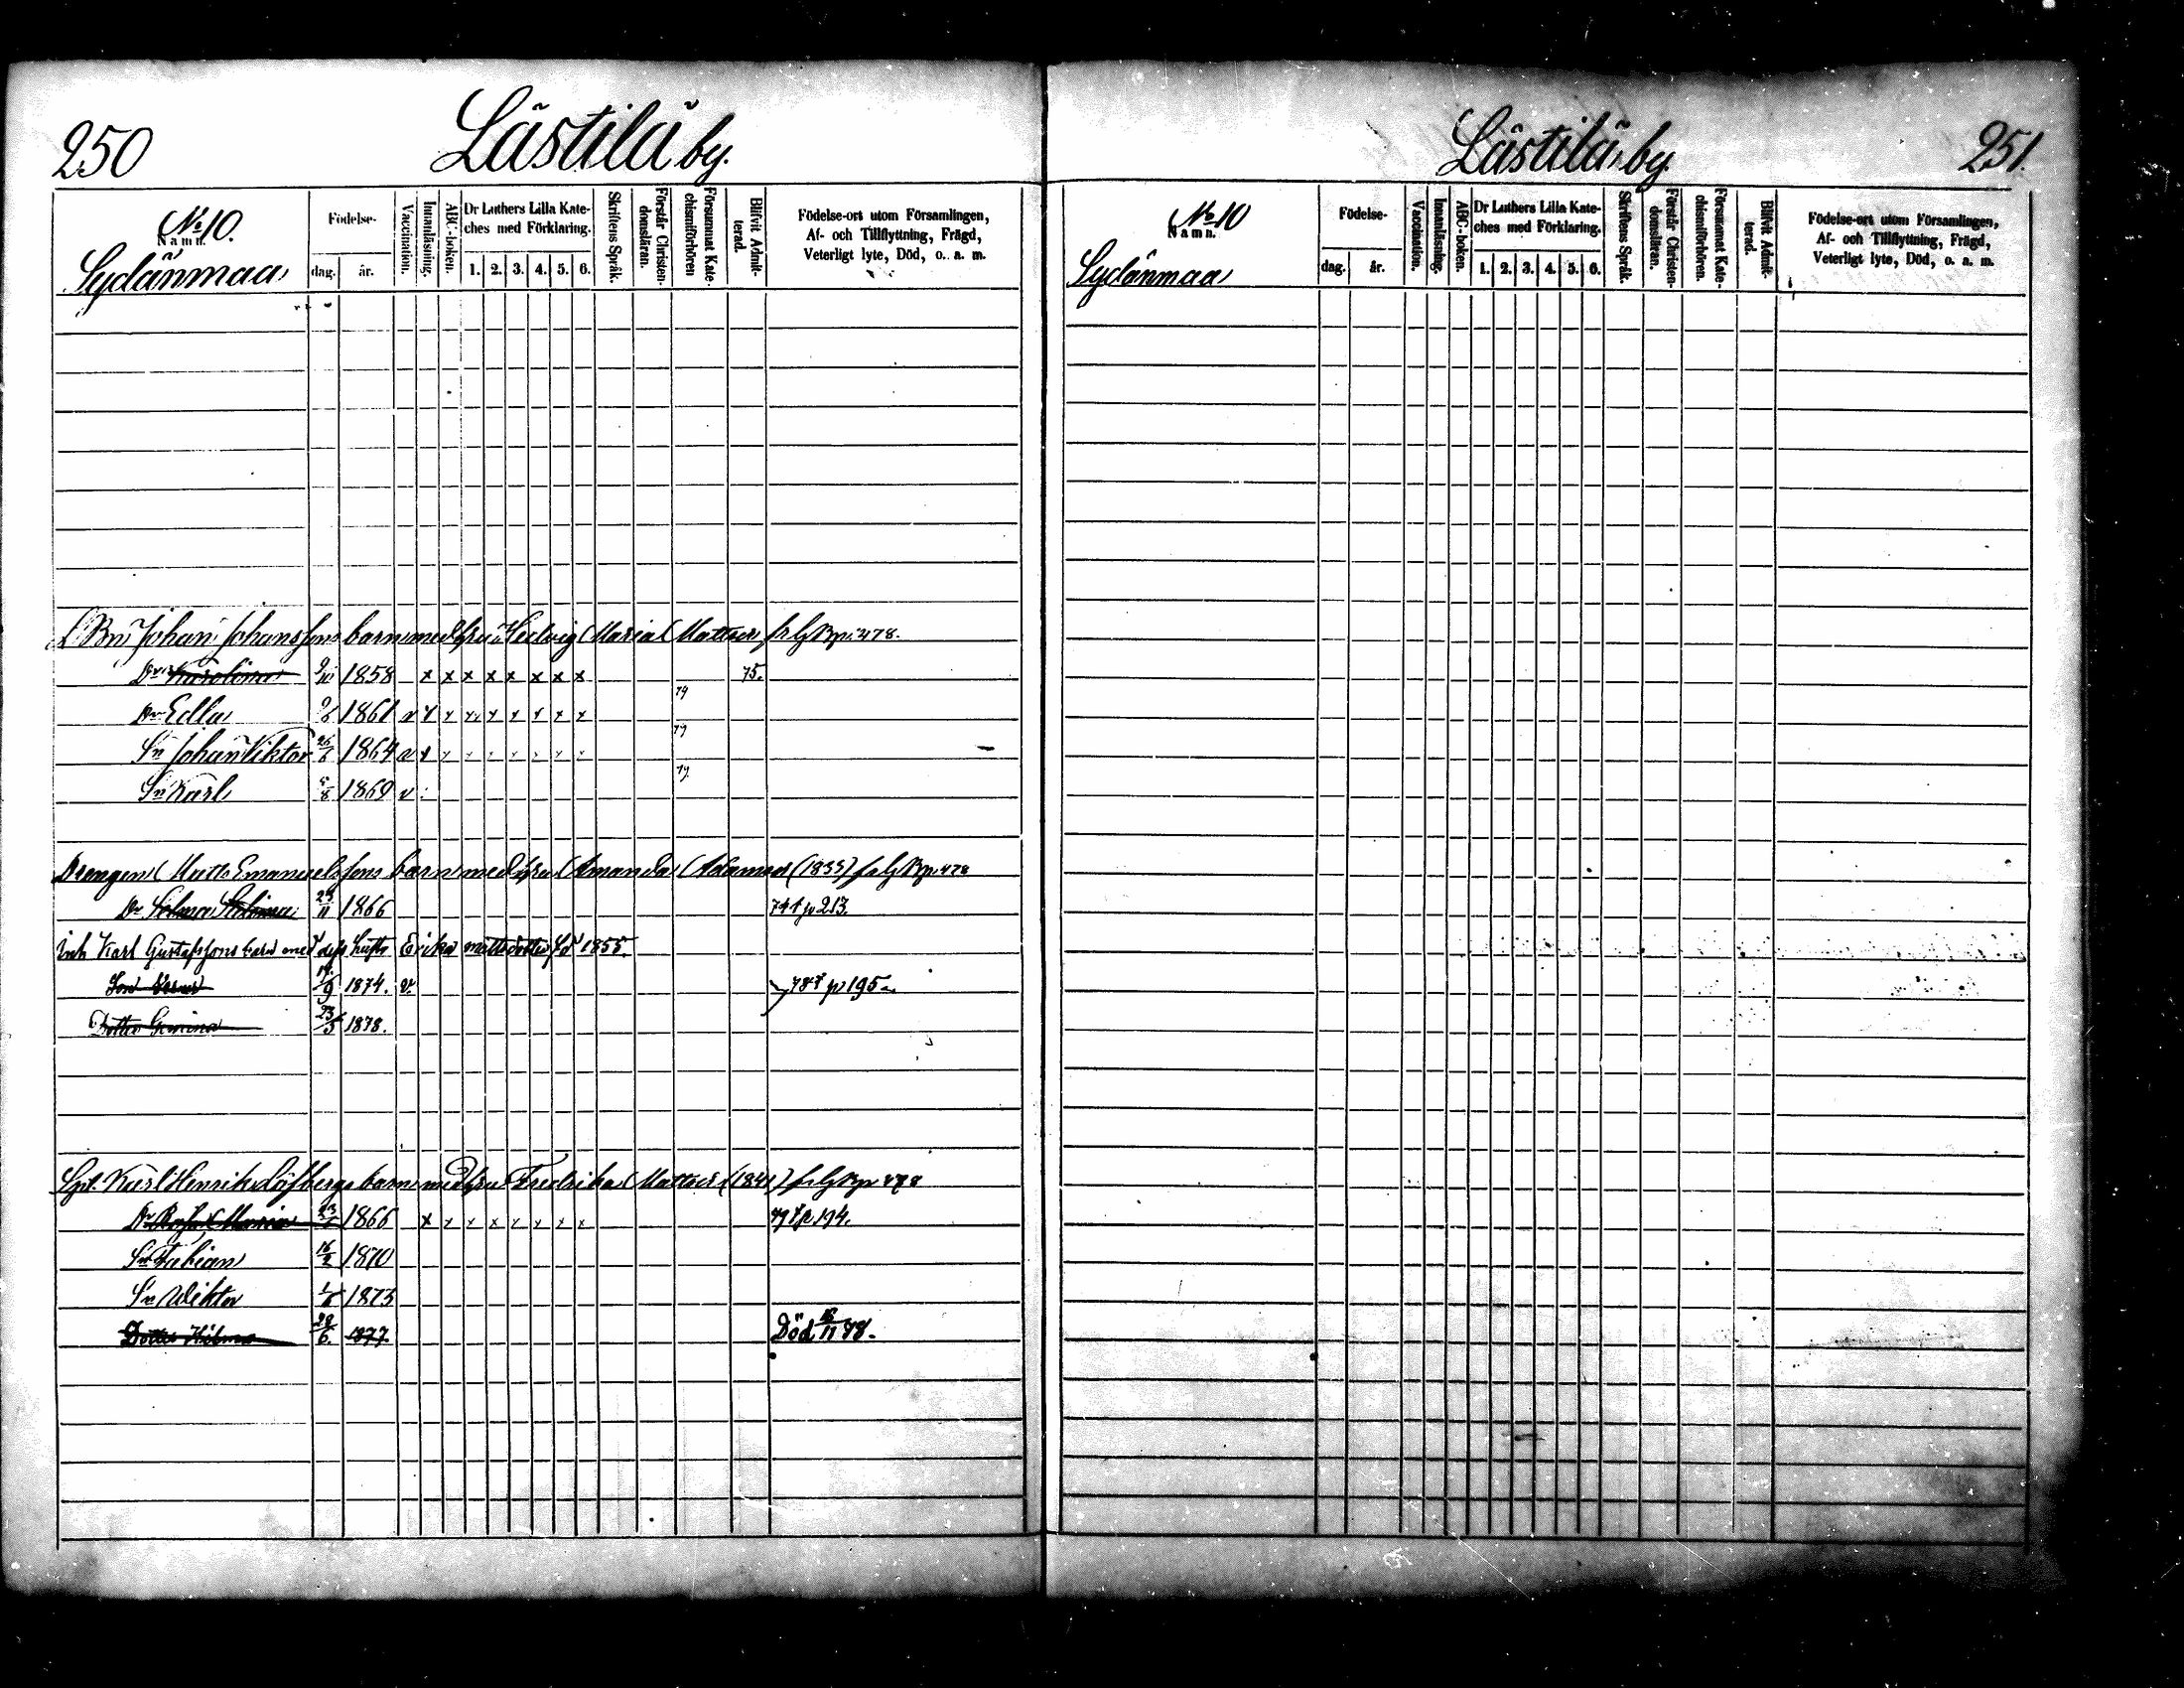 250
Lästilä by.
No 10.
Namn.
Sydänmaa
Födelse-
dag. år.
Vaccination.
Innanläsning.
ABC-boken.
Dr Luthers Lilla Kate-
ches med Förklaring.
1. 2. 3. 4. 5. 6.
Skriftens Språk.
Förstår Christen-
domsläran.
Försummat Kate-
chismiförhören
Blifvit Admit-
terad.
Födelse-ort utom Församlingen,
Af- och Tillflyttning, Frägd,
Veterligt lyte, Död, o. a. m.
Johan Johanssons barn med hru Hedvig Maria Mattsdr 478.
Dr Karolina 1858 x x x x x x x x 75.
79
Dr Edla 1861 v x x x x x x x x
79
Sn Johan Viktor 26/6 1864 v x x x x x x x x
79
Sn Karl 1869 v
Drengen Matts Emanuelssons barn med hru Amanda Adamsd (1835) 478
Dr Selma 23/11 1866 p 213.
inh Karl Gustafssons barn med dess hustr Erika Mattsdotter fd 1855.
Son 14/9 1874. v. 78 p 195
Dotter 23/5 1878.
Karl Henrik Löfbergs barn med hru Fredrika Mattsdr (1844) 478
Dr Maria 1866 x x x x x x x x 79 p 194.
Sn Fabian 16/2 1870
Sn Wiktor 1/6 1873
Dotter Hilma 28/6. 1877. Död 78.
Lästilä by.
251.
No 10
Namn.
Sydänmaa
Födelse-
dag. år.
Vaccination.
Innanläsning.
ABC-boken.
Dr Luthers Lilla Kate-
ches med Förklaring.
1. 2. 3. 4. 5. 6.
Skriftens Språk.
Förstår Christen-
domsläran.
Försummat Kate-
chismiförhören.
Blifvit Admit-
terad.
Födelse-ort utom Församlingen,
Af- och Tillflyttning, Frägd,
Veterligt lyte, Död, o. a. m.